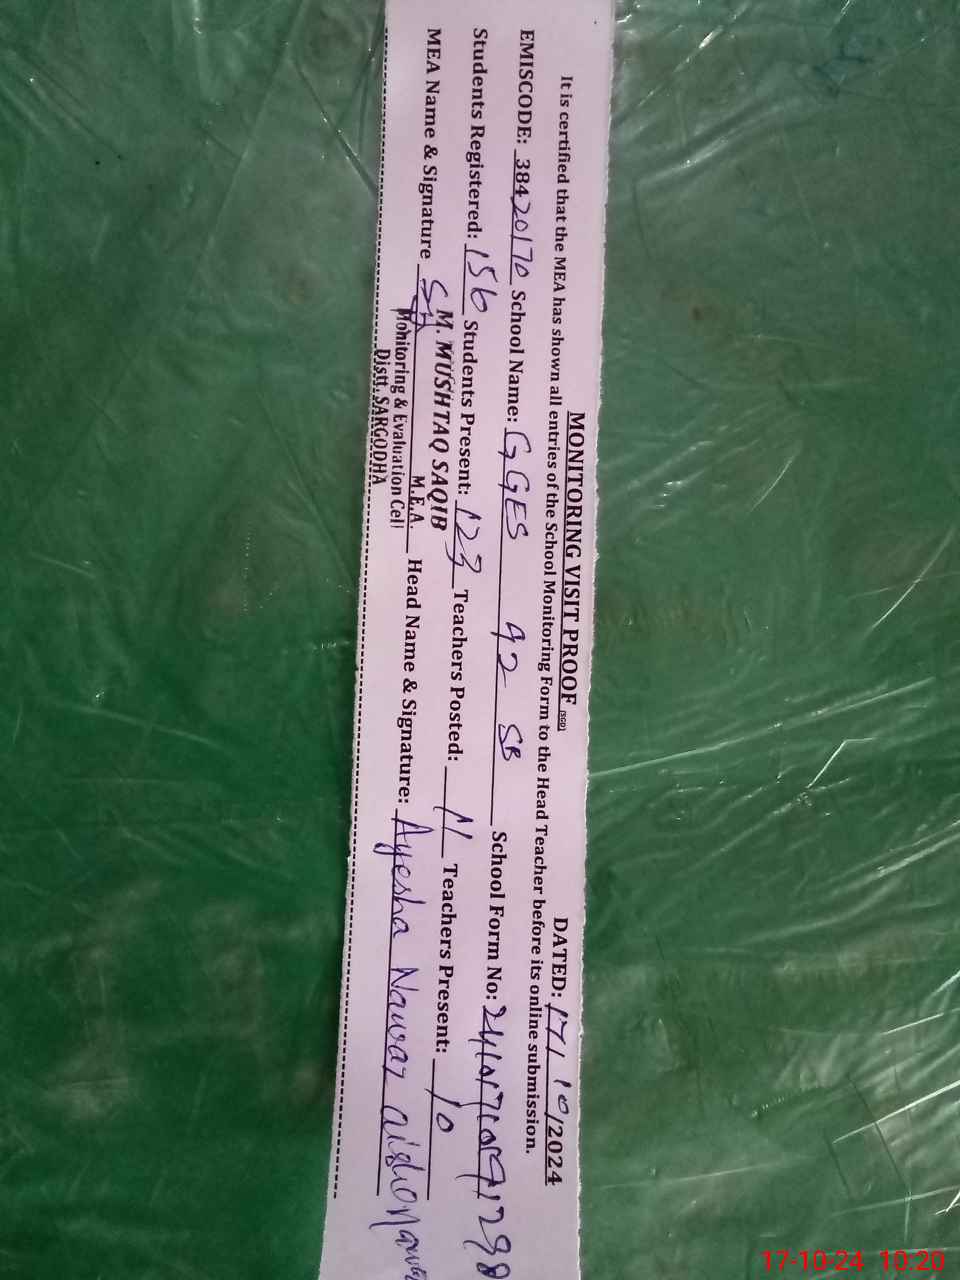 MONITORING VISIT PROOF (SGD) DATED: 17/10/2024
It is certified that the MEA has shown all entries of the School Monitoring Form to the Head Teacher before its online submission.
EMISCODE: 38420170 School Name: GGES 92 SB School Form No:
Students Registered: 156 Students Present: 123 Teachers Posted: 11 Teachers Present: 10
MEA Name & Signature Head Name & Signature: Ayesha Nawaz
M. MUSHTAQ SAQIB
M.E.A.
Monitoring & Evaluation Cell
Distt. SARGODHA
17-10-24 10:20